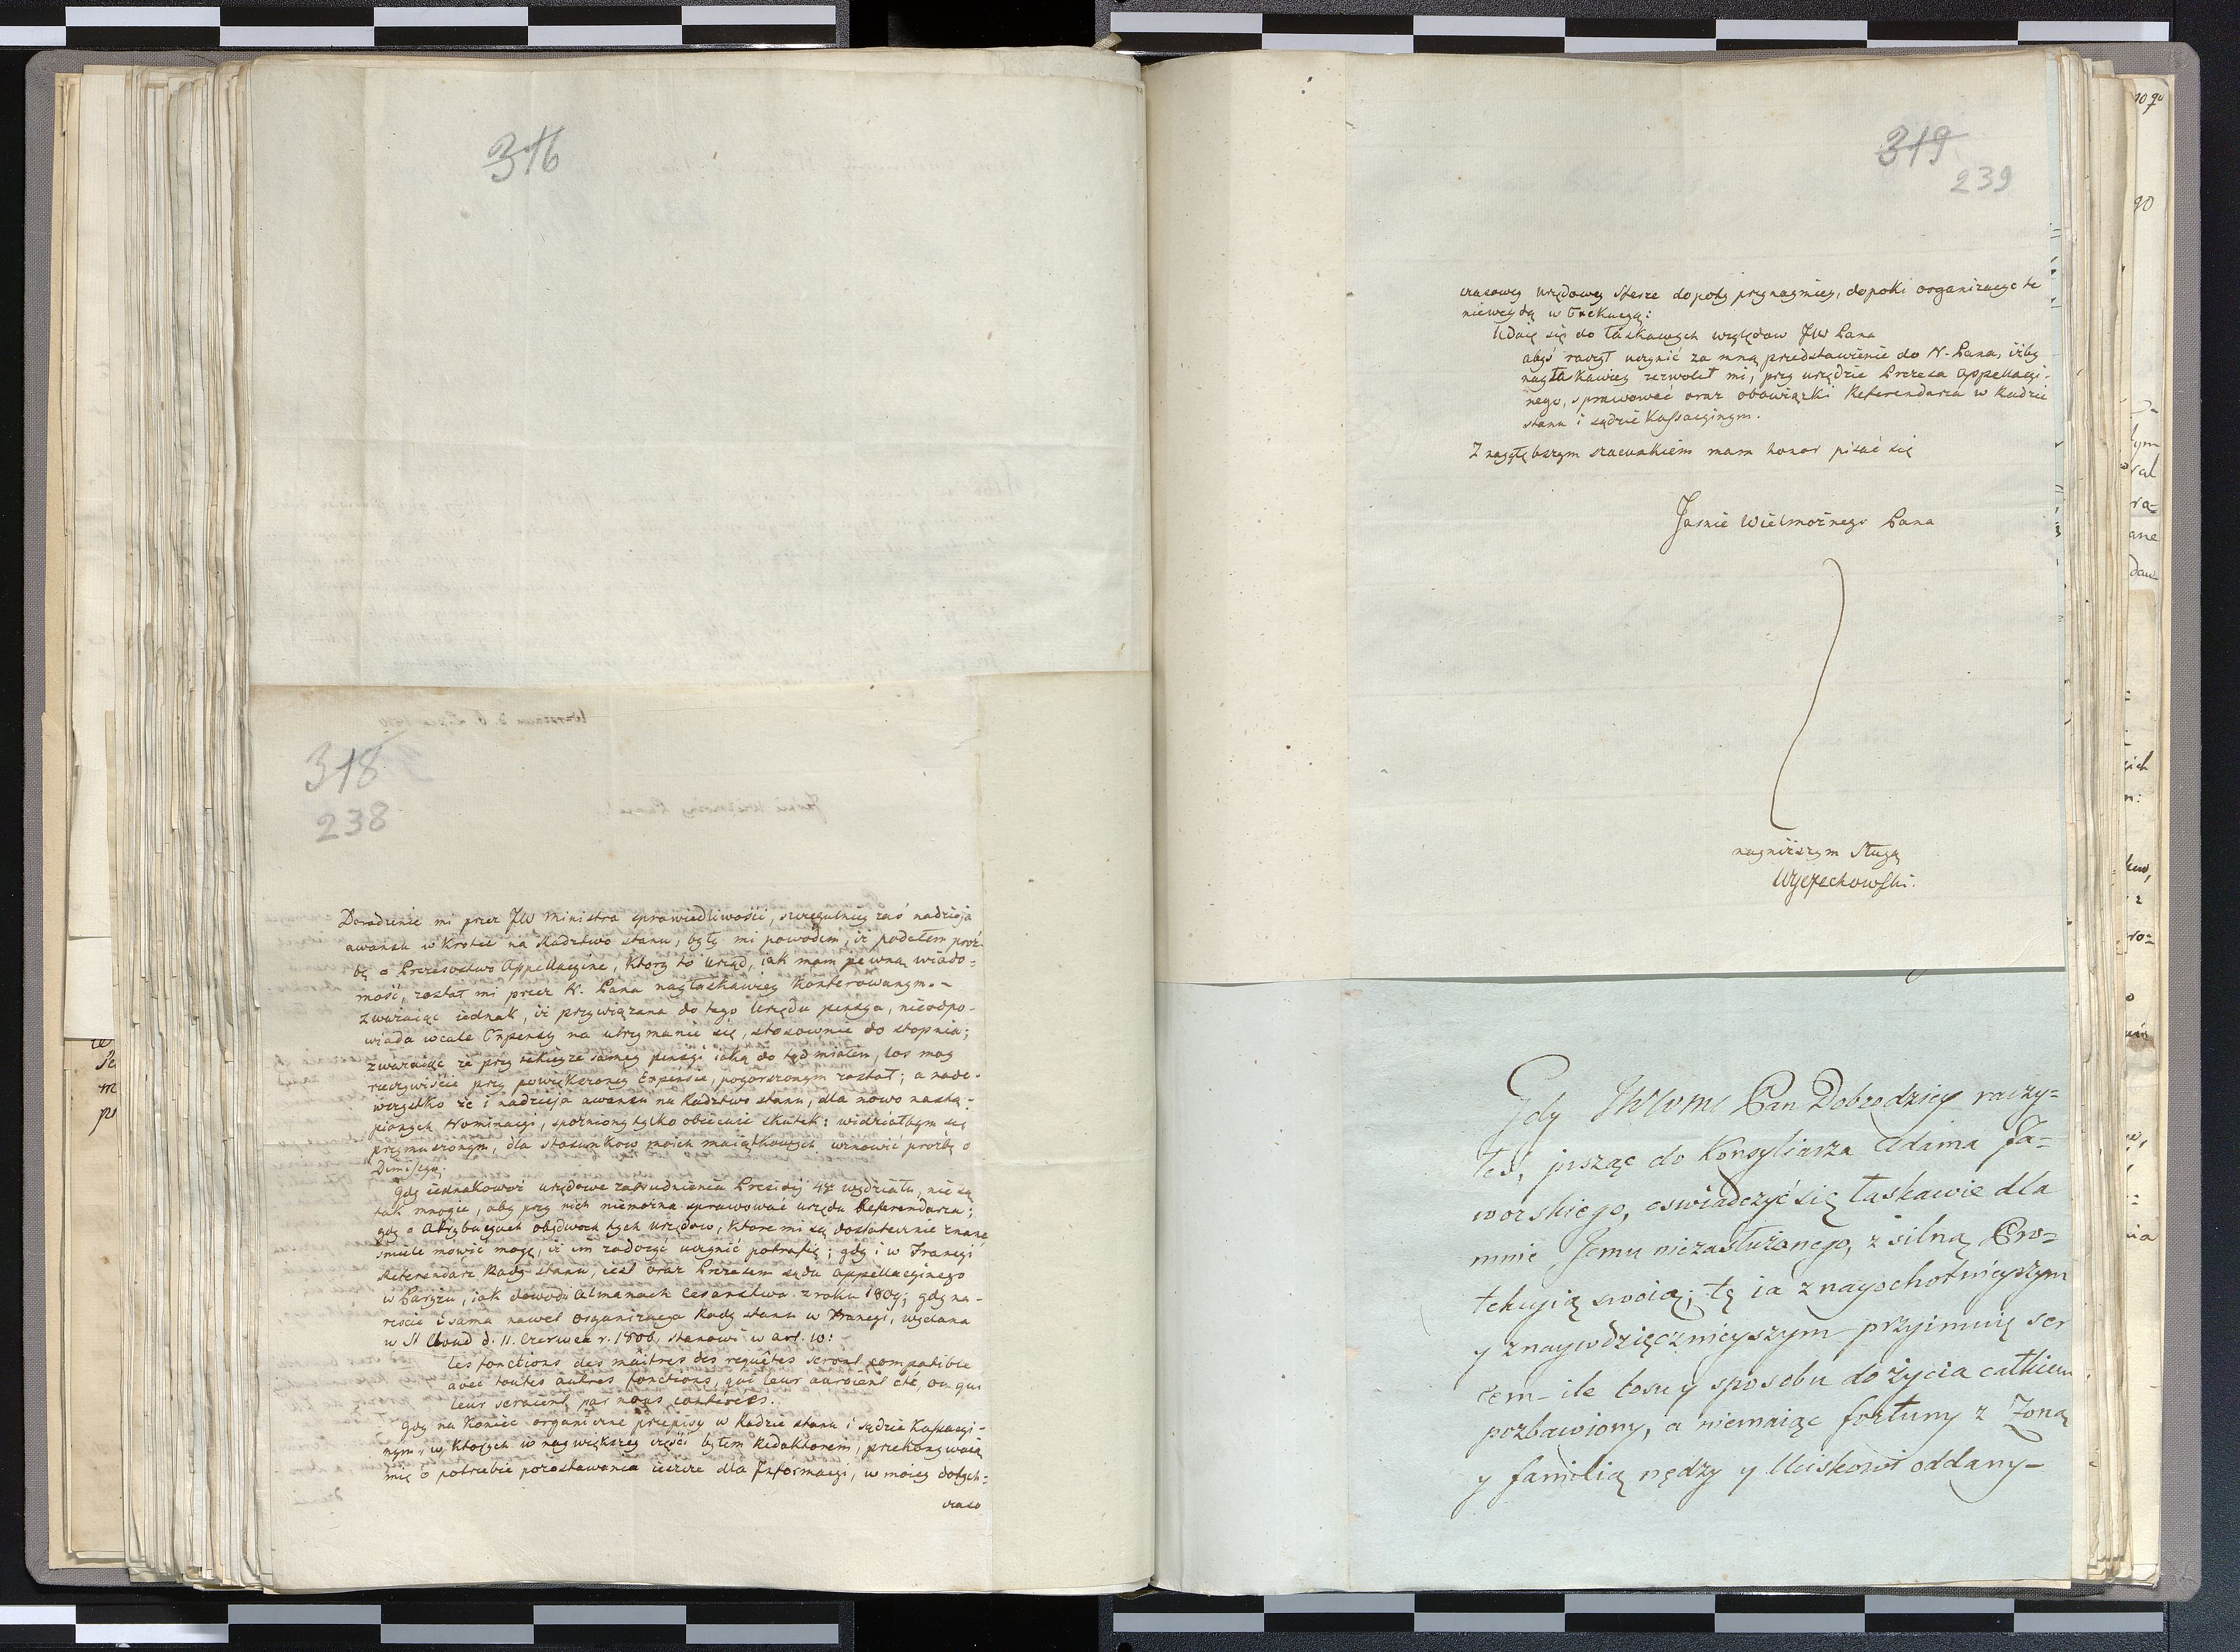 316
318
238
Doradzenie mi przez JW Ministra sprawiedliwości, szczegulniey zaś nadzieja
awansu w krotce na Radztwo stanu, były mi powodem, iż podałem proź-
bę o Prezesostwo Appellacyine, który to Urząd, iak mam pewną wiado=
mość, został mi przez N. Pana nayłaskawiey konferowanym.-
Zważaiąc iednak, iż przywiązana do tego Urzędu pensya, nieodpo-
wiada wcale Expensy na utrzymanie się, stosownie do stopnia;
zważaiąc że przy takieyże samey pensyi iaką do tąd miałem, los moy
rzeczywiście przy powiększoney Expensie, pogorszonym został; a nade-
wszystko że i nadzieja awansu na Radztwo stanu, dla nowo nastą-
pionych Nominacyi, spóźniony tylko obiecuie skutek: widziałbym się
przymuszonym, dla stosunkow moich maiątkowych wznowić prożbę o
Dimissyą;
Gdy iednakowoż urzędowe zatrudnienia Prezidij wydziału, nie są
tak mnogie, aby przy nich niemożna sprawować urzędu Referendarza;
gdy o Attrybucyach obydwoch tych urzędow, ktore mi są dostatecznie znane
śmiele mówić mogę, iż im zadosyć uczynić potrafię; gdy i w Francyi
Referendarz Rady stanu, iest oraz Prezesem sądu appellacyinego
w Paryżu, iak dowodzi Almanach Cesarstwa z roku 1809; gdy na-
reście i sama nawet organizacya Rady stanu w Francyi, wydana
w St Cloud d. 11. Czerwca r. 1806, stanowi w art. 10:
les fonctions des maîtres des requêtes seront compatible
avec toutes autres fonctions, qui leur auroient été, ou qui
leur seroient par nous conférées.
Gdy na koniec organiczne przepisy w Radzie stanu i sądzie Kassacyi-
nym, w ktorych w naywiększey części byłem Redaktorem, przekonywaią
mię o potrzebie pozostawania ieszcze dla Informacyi, w moiey dotych=
czaso
319
239
czasowey urzędowey sferze dopoty przynaymniey, dopoki organizacye te
nieweydą w Exekucyą:
Udaię się do łaskawych względow JW Pana
abyś raczył uczynić za mną przedstawienie do N. Pana, iżby
nayłaskawiey zezwolił mi, przy urzędzie Prezesa appellacyi-
nego, sprawować oraz obowiązki Referendarza w Radzie
stanu i sądzie Kassacyinym.
Z naygłębszym szacunkiem mam honor pisać się
Jaśnie Wielmożnego Pana
nayniższym sługą
Wyczechowski.
Gdy JWWMC Pan Dobrodziey raczy=
łeś, pisząc do Konsyliarza Adama Ja=
worskiego, oswiadczyć się łaskawie dla
mnie Jemu niezasłużonego, z silną Pro=
tekcyią swoią; tę ia z nayochotnieyszym
y z naywdzięcznieyszym przyimuię ser
cem - ile losu y sposobu do życia całkiem
pozbawiony, a niemaiąc fortuny z Zoną
y familią nędzy y Uciskowi oddany-